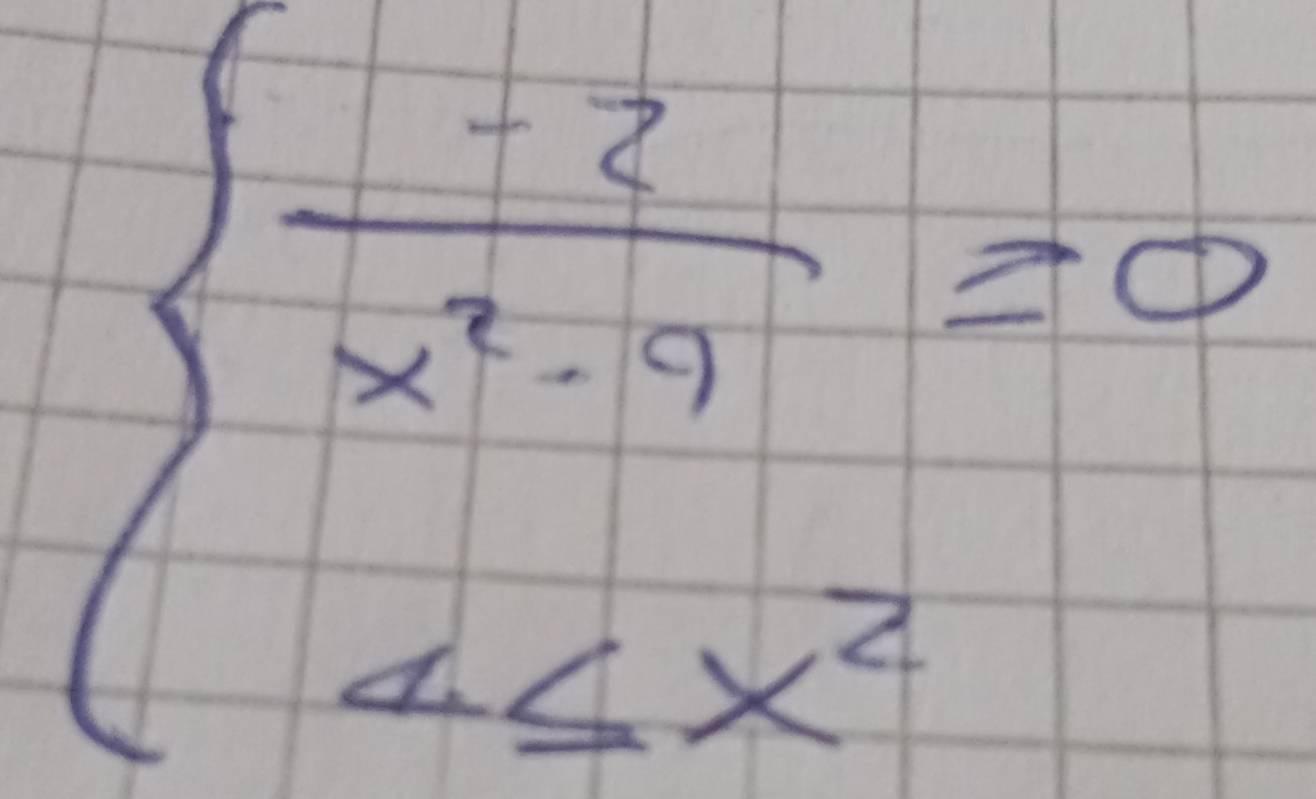 { -2 / (x² - 9) ≥ 0
4 ≤ x²